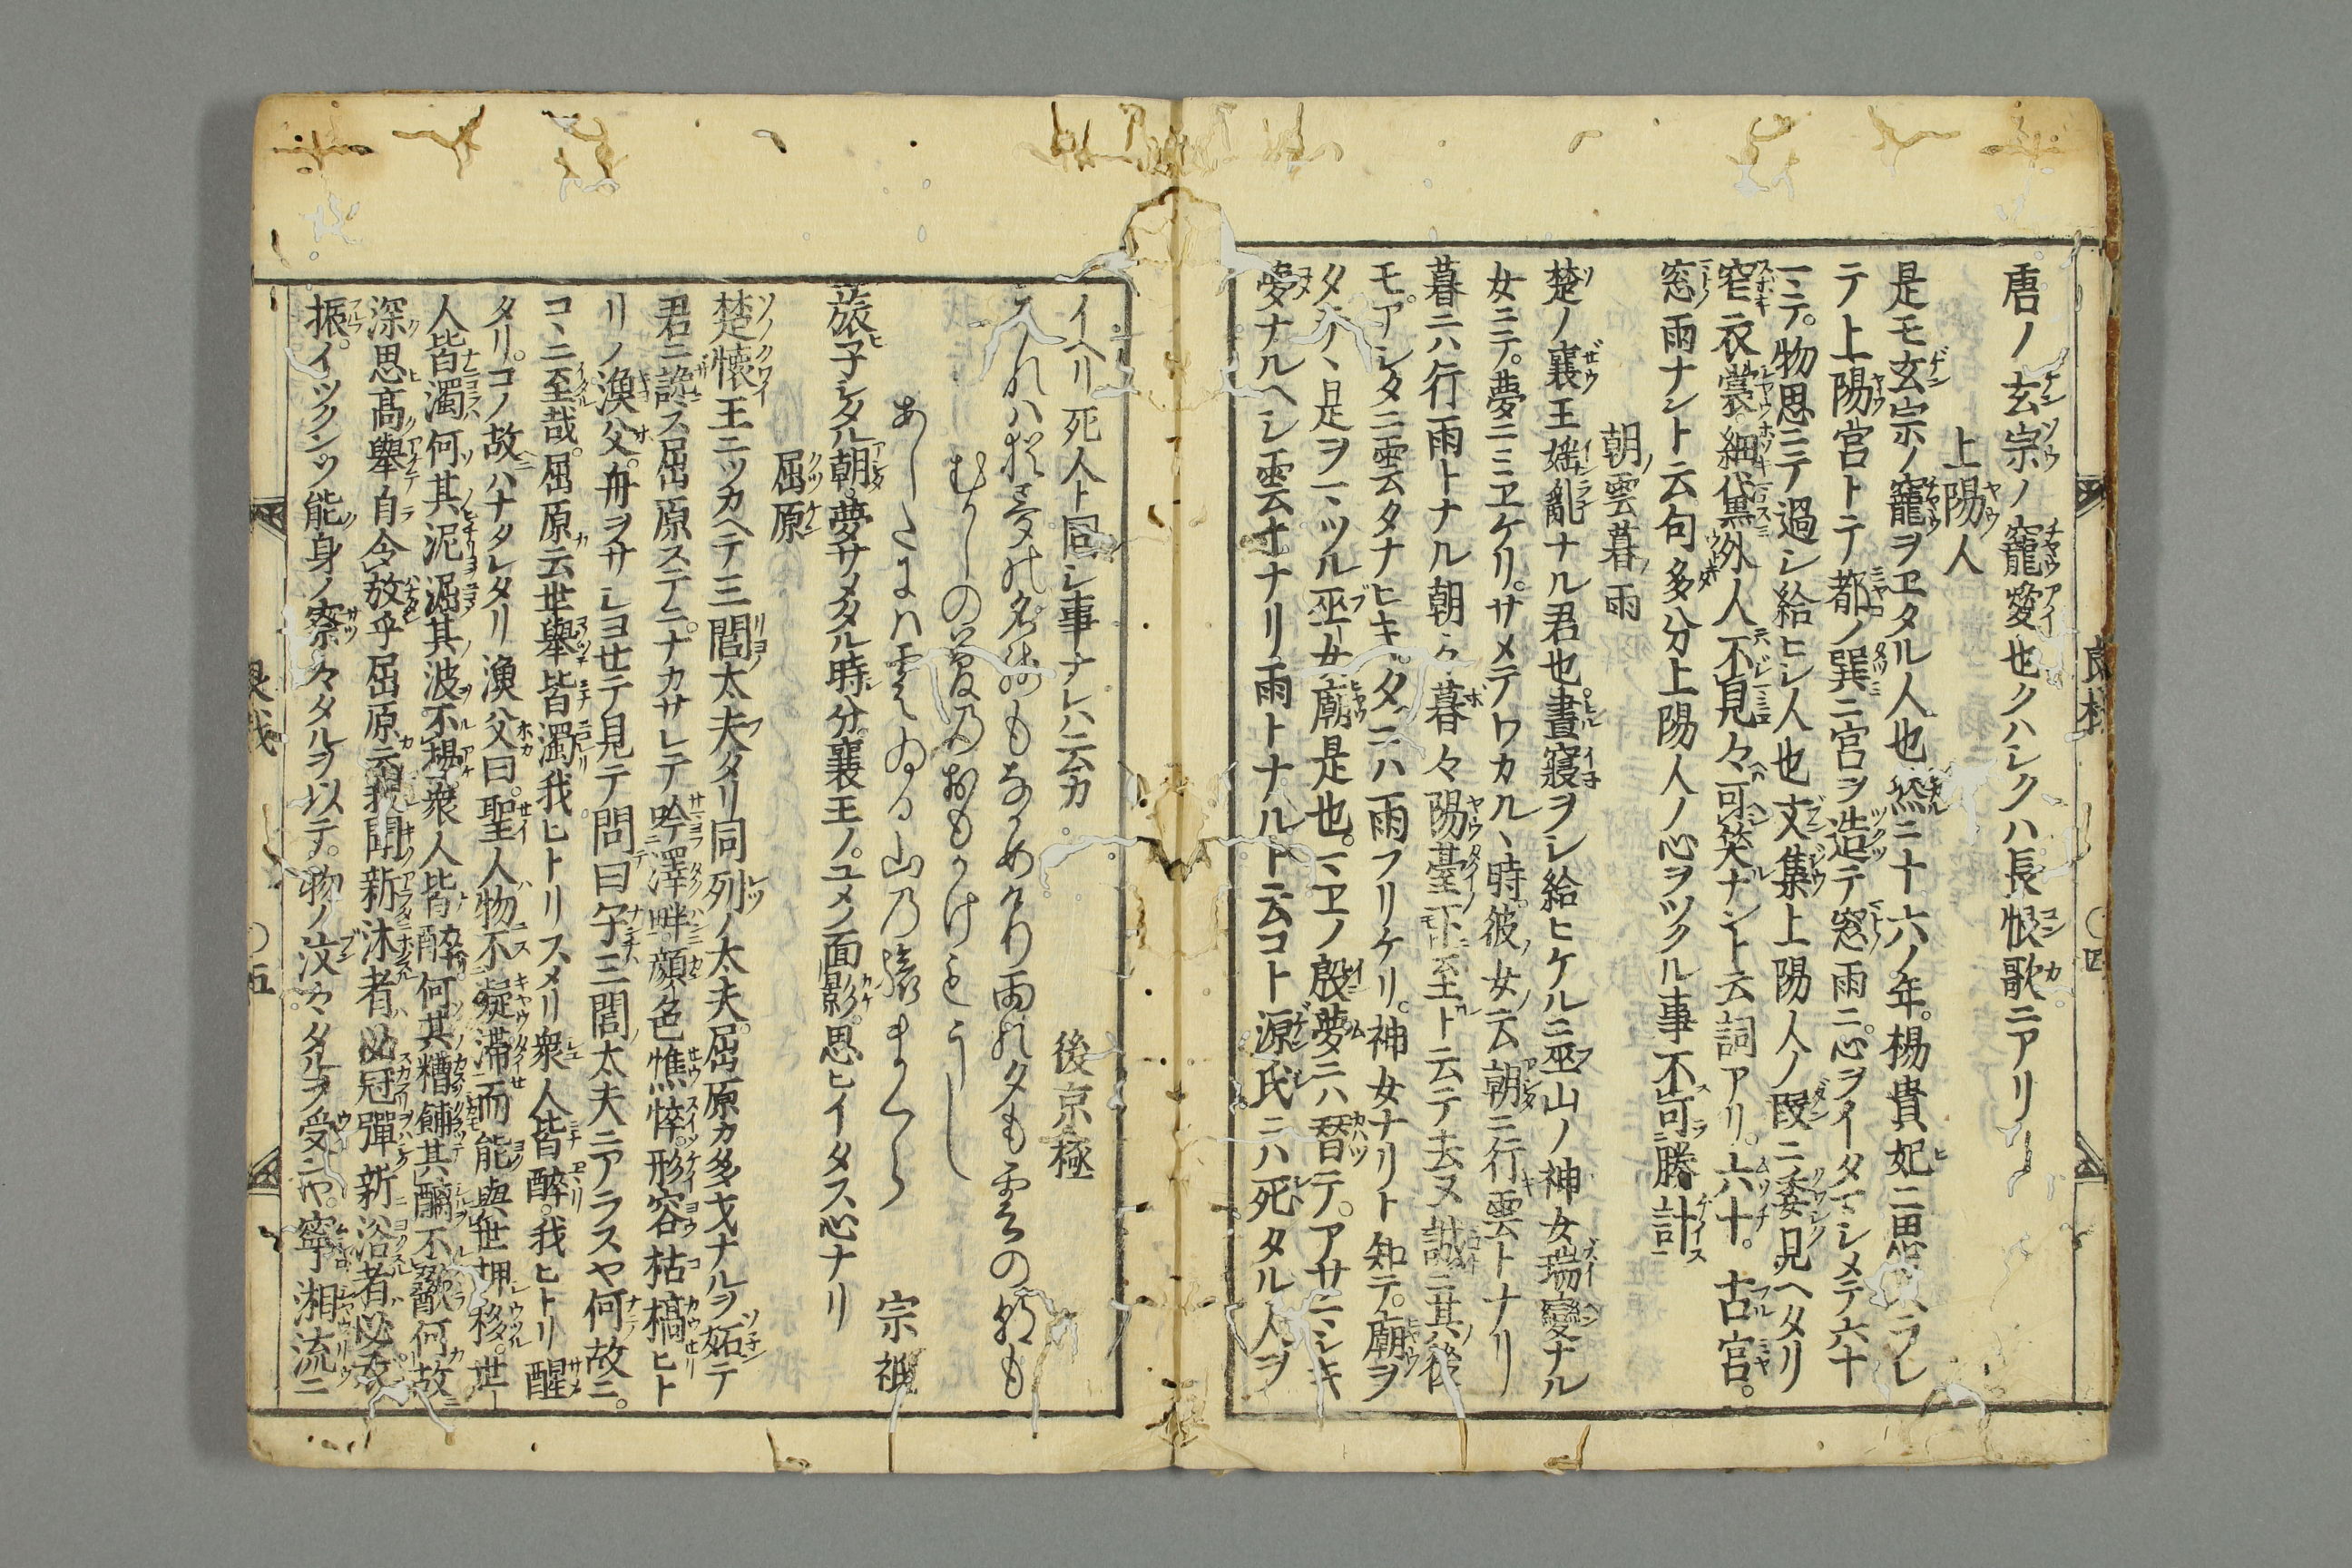 唐ノ玄宗ノ寵愛也クハシクハ長恨歌ニアリ
上陽人
是モ玄宗ノ寵ヲヱタル人也然ニ十六ノ年。楊貴妃ニ思ハラレ
テ上陽宮トテ都ノ巽ニ宮ヲ造テ窓雨ニ心ヲイタマシメテ六十
マテ。物思ニテ過シ給ヒシ人也文集上陽人ノ段ニ委見ヘタリ
窄衣裳細黛外人不見々可笑ナント云詞アリ。六十。古宮。
窓雨ナント云句多分上陽人ノ心ヲツクル事不可勝計
朝雲暮雨
楚ノ襄王婬亂ナル君也晝寢ヲシ給ヒケルニ巫山ノ神女瑞變ナル
女ニテ。夢ニミヱケリ。サメテワカル丶時。彼女ノ云朝ニ行雲トナリ
暮ニハ行雨トナル朝々暮々陽臺下至ト云テ去ヌ誠ニ其後
モ。アシタニ雲タナヒキ。夕ニハ雨フリケリ。神女ナリト知テ。廟ヲ
タテ丶是ヲマツル巫女廟是也。マヱノ殷夢ニハ替テ。アサマシキ
夢ナルヘシ雲ナナリ雨トナルト云コト源氏ニハ死タル人ヲ
良材
〇四
イヘリ死人ト同シ事ナレハ云カ
後京極
れハ夢の名残もなかめけり雨の夕も雲の朝も
むかしの夢のおもかけをうし
あしたにハ雲ゐる山の
宗祇
旅子シタル朝。夢サメタル時分。襄王ノ。ユメノ面影。思ヒイタス心ナリ
屈原
楚懷王ニツカヘテ三閭太夫タリ同列ノ太夫。屈原カ多才ナルヲ妬テ
君ニ讒ス屈原ステニ。ナカサレテ吟澤畔顔色憔悴。形容枯槁ヒト
リノ漁父。舟ヲサシヨセテ見テ問曰子三閭太夫ニアラスヤ何故ニ。
コ丶ニ至哉。屈原云世舉皆濁我ヒトリスメリ衆人皆醉。我ヒトリ醒
タリ。コノ故ハナタレタリ漁父曰。聖人物不凝滯而能與世推移。世
人皆濁何其泥濁其波不揚。衆人皆醉何其糟餔其醨不歠何故
深思高舉自令放乎屈原云我聞新沐者必冠彈新浴者必衣
振。イツクンソ能身ノ察々タルヲ以テ。物ノ汶々タルヲ受ンヤ。寧湘流ニ
良材
〇五